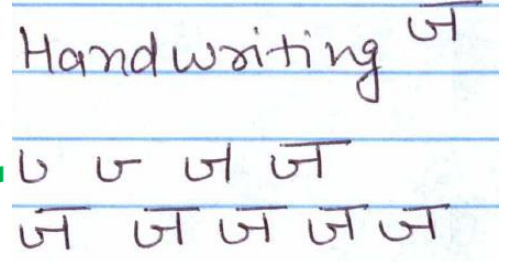 Handwriting ज
ज ज
ज ज ज ज ज